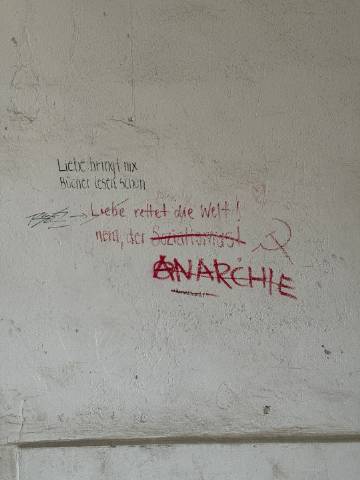 Liebe bringt nix
Bücher lesen schon
Liebe rettet die Welt!
nein, der Sozialismus!
ANARCHIE